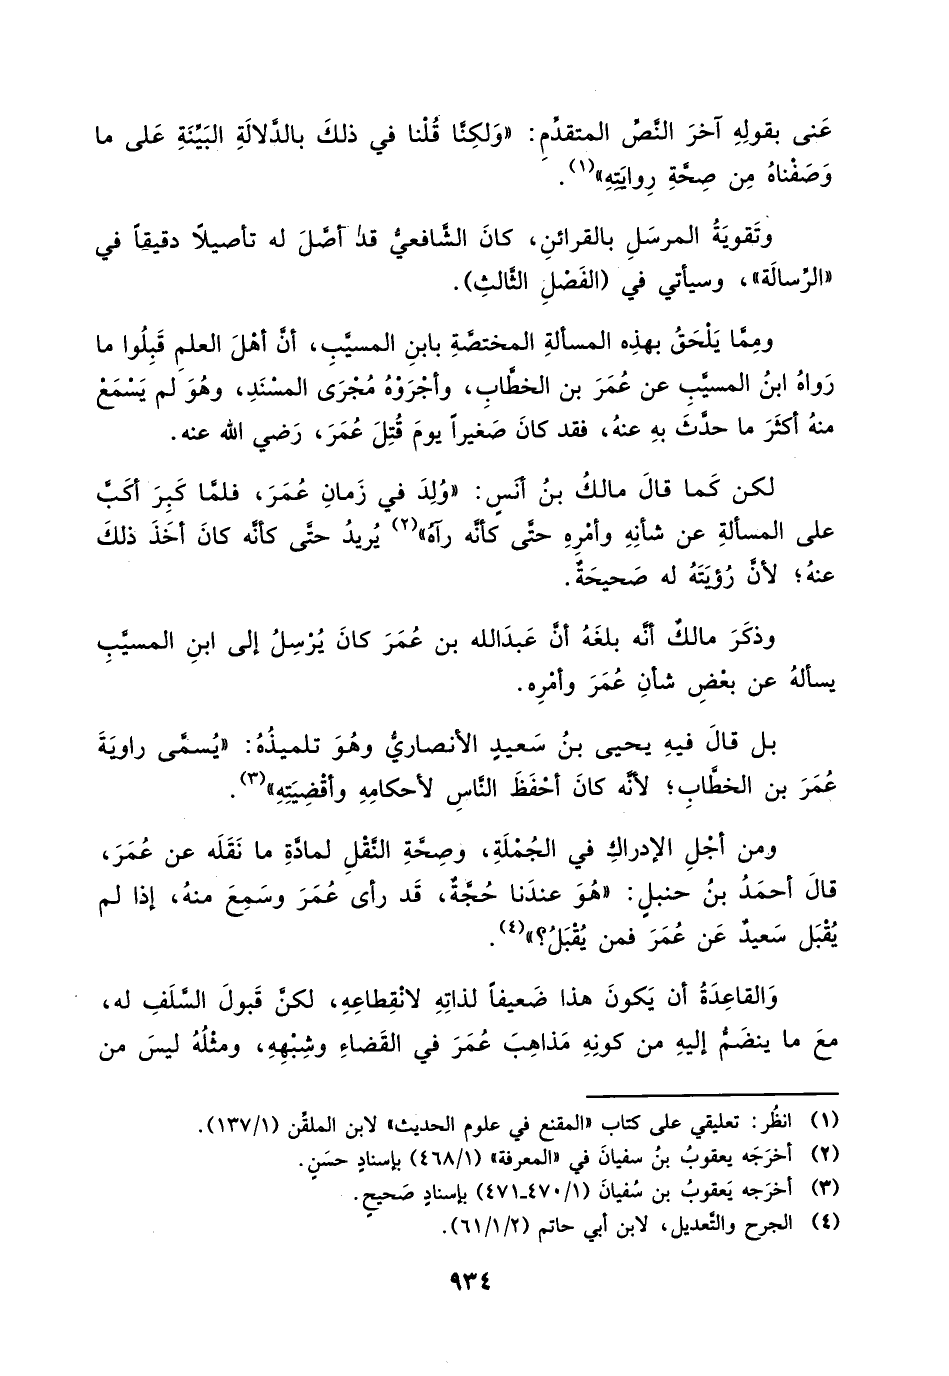 عَنى بقولِهِ آخرَ النَّصِّ المتقدِّمِ: «وَلكِنَّا قُلْنا في ذلكَ بالدَّلالَةِ البَيِّنَةِ عَلى ما
وَصَفْناهُ مِن صِحَّةِ رِوايَتِهِ»(١).
وتَقويَةُ المرسَلِ بالقرائنِ، كانَ الشَّافعيُّ قدْ أصَّلَ له تأصيلاً دقيقاً في
«الرِّسالَة»، وسيأتي في (الفَصْلِ الثَّالثِ).
ومِمَّا يَلْحَقُ بهذِه المسألةِ المختصَّةِ بابنِ المسيَّبِ، أنَّ أهْلَ العلمِ قَبِلُوا ما
رَواهُ ابنُ المسيَّبِ عن عُمَرَ بن الخطَّابِ، وأجْرَوْهُ مُجْرَى المسْنَدِ، وهُوَ لم يَسْمَعْ
منهُ أكثَرَ ما حدَّثَ بهِ عنهُ، فقد كانَ صَغيراً يومَ قُتِلَ عُمَرَ، رَضي الله عنه.
لكن كَما قالَ مالكُ بنُ أنَسٍ: «وُلِدَ في زَمانِ عُمَرَ، فلمَّا كَبِرَ أكَبَّ
على المسألةِ عن شأنِهِ وأمْرِهِ حتَّى كأنَّه رآهُ»(٢) يُريدُ حتَّى كأنَّه كانَ أخَذَ ذلكَ
عنهُ؛ لأنَّ رُؤيَتَهُ له صَحيحَةٌ.
وذكَرَ مالكٌ أنَّه بلغَهُ أنَّ عبدَالله بن عُمَرَ كانَ يُرْسِلُ إلى ابنِ المسيَّبِ
يسألهُ عن بعْضِ شأنِ عُمَرَ وأمْرِه.
بل قالَ فيهِ يحيى بنُ سَعيدٍ الأنصاريُّ وهُوَ تلميذُهُ: «يُسمَّى راويَةَ
عُمَرَ بن الخطَّابِ؛ لأنَّه كانَ أحْفَظَ النَّاسِ لأحكامِهِ وأقْضِيَتِهِ»(٣).
ومن أجْلِ الإدراكِ في الجُمْلَةِ، وصِحَّةِ النَّقْلِ لمادَّةِ ما نَقَلَه عن عُمَرَ،
قالَ أحمَدُ بنُ حنبلٍ: «هُوَ عندَنا حُجَّةٌ، قَد رأى عُمَرَ وسَمِعَ منهُ، إذا لم
يُقْبَل سَعيدٌ عَن عُمَرَ فمن يُقْبَلُ؟»(٤).
وَالقاعِدَةُ أن يَكونَ هذا ضَعيفاً لذاتِهِ لانْقِطاعِهِ، لكنَّ قَبولَ السَّلَفِ له،
معَ ما ينضَمُّ إليهِ من كونِهِ مَذاهِبَ عُمَرَ في القَضاءِ وشِبْهِهِ، ومثْلُهُ ليسَ من
(١) انظُر: تعليقي على كتاب «المقنع في علوم الحديث» لابن الملقِّن (١/١٣٧).
(٢) أخرَجَه يعقوبُ بنُ سفيانَ في «المعرفة» (١/٤٦٨) بإسنادٍ حسَنٍ.
(٣) أخرَجه يَعقوبُ بن سُفيانَ (١/٤٧٠-٤٧١) بإسنادٍ صَحيحٍ.
(٤) الجرح والتَّعديل، لابن أبي حاتم (٢/١/٦١).
٩٣٤